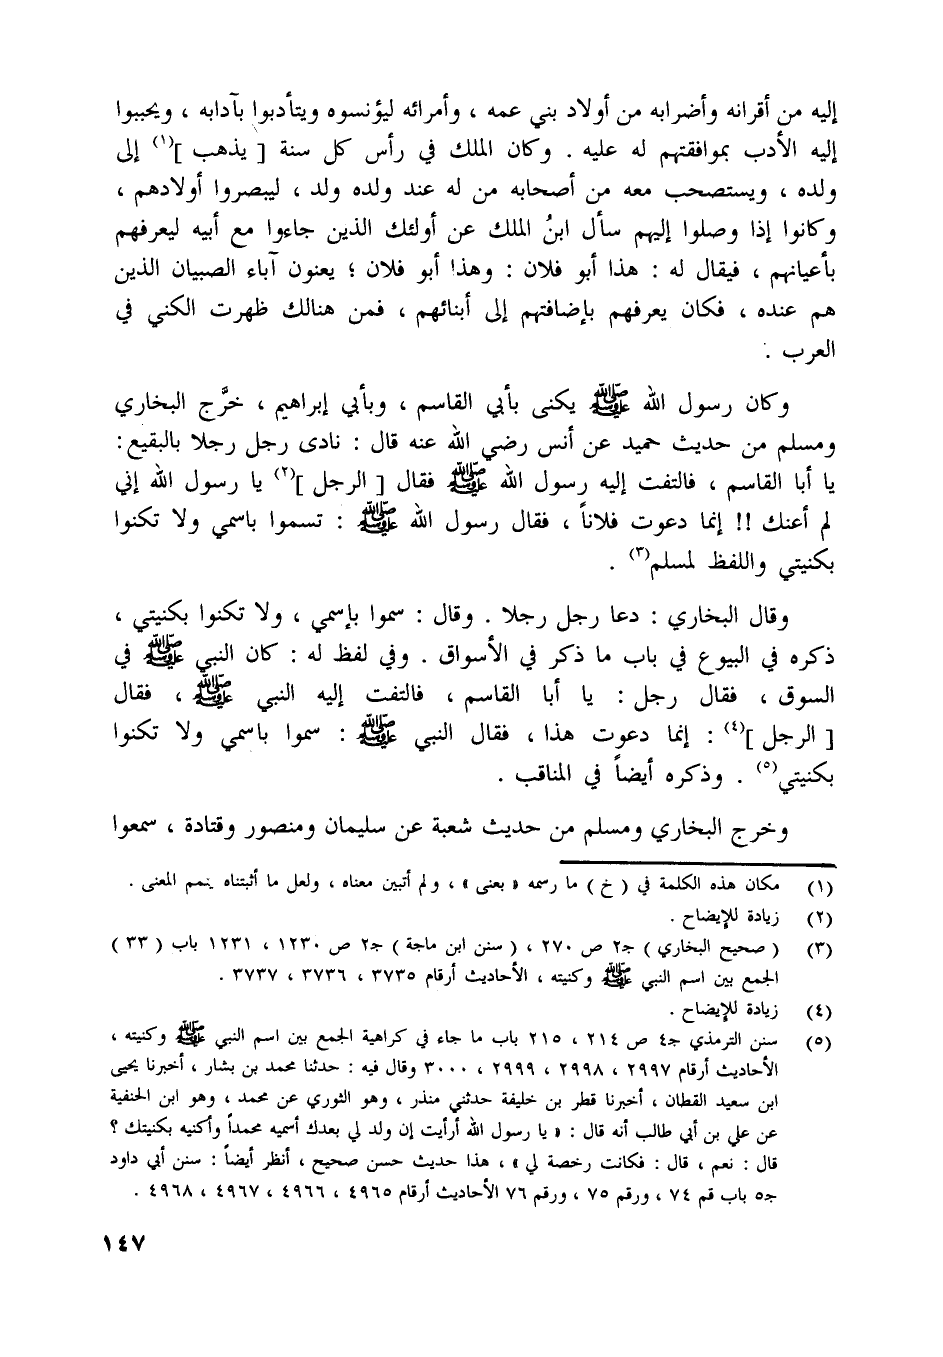 إليه من أقرانه وأضرابه من أولاد بني عمه ، وأمرائه ليؤنسوه ويتأدبوا بآدابه ، ويحببوا
إليه الأدب بموافقتهم له عليه . وكان الملك في رأس كل سنة [ يذهب ]<sup>(١)</sup> إلى
ولده ، ويستصحب معه من أصحابه من له عند ولده ولد ، ليبصروا أولادهم ،
وكانوا إذا وصلوا إليهم سأل ابنُ الملك عن أولئك الذين جاءوا مع أبيه ليعرفهم
بأعيانهم ، فيقال له : هذا أبو فلان : وهذا أبو فلان ؛ يعنون آباء الصبيان الذين
هم عنده ، فكان يعرفهم بإضافتهم إلى أبنائهم ، فمن هنالك ظهرت الكنى في
العرب .
وكان رسول الله ﷺ يكنى بأبي القاسم ، وبأبي إبراهيم ، خرَّج البخاري
ومسلم من حديث حميد عن أنس رضي الله عنه قال : نادى رجل رجلا بالبقيع :
يا أبا القاسم ، فالتفت إليه رسول الله ﷺ فقال [ الرجل ]<sup>(٢)</sup> يا رسول الله إني
لم أعنك !! إنما دعوت فلاناً ، فقال رسول الله ﷺ : تسموا باسمي ولا تكنوا
بكنيتي واللفظ لمسلم<sup>(٣)</sup> .
وقال البخاري : دعا رجل رجلا . وقال : سموا بإسمي ، ولا تكنوا بكنيتي ،
ذكره في البيوع في باب ما ذكر في الأسواق . وفي لفظ له : كان النبي ﷺ في
السوق ، فقال رجل : يا أبا القاسم ، فالتفت إليه النبي ﷺ ، فقال
[ الرجل ]<sup>(٤)</sup> : إنما دعوت هذا ، فقال النبي ﷺ : سموا باسمي ولا تكنوا
بكنيتي<sup>(٥)</sup> . وذكره أيضاً في المناقب .
وخرج البخاري ومسلم من حديث شعبة عن سليمان ومنصور وقتادة ، سمعوا
(١) مكان هذه الكلمة في ( خ ) ما رسمه « بعنى » ، ولم أتبين معناه ، ولعل ما أثبتناه يتمم المعنى .
(٢) زيادة للإيضاح .
(٣) ( صحيح البخاري ) جـ٢ ص ٢٧٠ ، ( سنن ابن ماجة ) جـ٢ ص ١٢٣٠ ، ١٢٣١ باب ( ٣٣ )
الجمع بين اسم النبي ﷺ وكنيته ، الأحاديث أرقام ٣٧٣٥ ، ٣٧٣٦ ، ٣٧٣٧ .
(٤) زيادة للإيضاح .
(٥) سنن الترمذي جـ٤ ص ٢١٤ ، ٢١٥ باب ما جاء في كراهية الجمع بين اسم النبي ﷺ وكنيته ،
الأحاديث أرقام ٢٩٩٧ ، ٢٩٩٨ ، ٢٩٩٩ ، ٣٠٠٠ وقال فيه : حدثنا محمد بن بشار ، أخبرنا يحيى
ابن سعيد القطان ، أخبرنا قطر بن خليفة حدثني منذر ، وهو الثوري عن محمد ، وهو ابن الحنفية
عن علي بن أبي طالب أنه قال : « يا رسول الله أرأيت إن ولد لي بعدك أسميه محمداً وأكنيه بكنيتك ؟
قال : نعم ، قال : فكانت رخصة لي » ، هذا حديث حسن صحيح ، أنظر أيضاً : سنن أبي داود
جـ٥ باب قم ٧٤ ، ورقم ٧٥ ، ورقم ٧٦ الأحاديث أرقام ٤٩٦٥ ، ٤٩٦٦ ، ٤٩٦٧ ، ٤٩٦٨ .
١٤٧